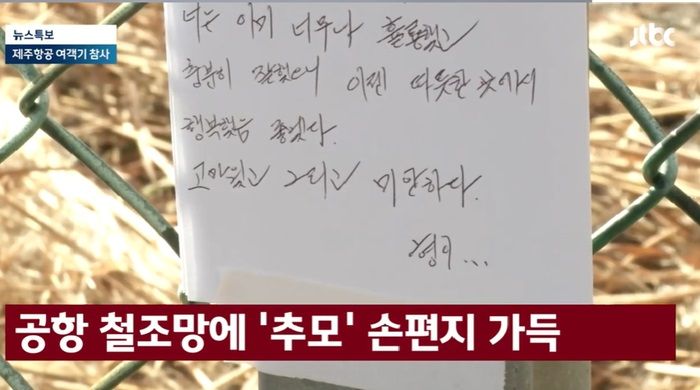 뉴스특보
제주항공 여객기 참사
jtbc
너는 이미 너무나 훌륭했고
충분히 잘했으니 이젠 따뜻한 곳에서
행복했음 좋겠다.
고마웠고 그리고 미안하다.
형이...
공항 철조망에 '추모' 손편지 가득